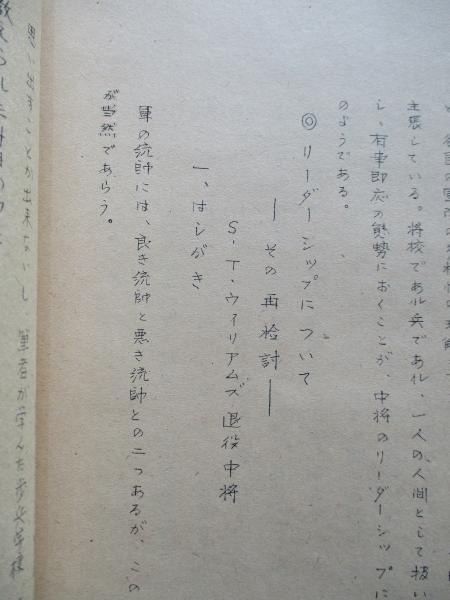 主張している。将校であれ兵であれ、一人の人間として扱い
し、有事即応の態勢におくことが、中将のリーダーシップに
のようである。
◎ リーダーシップについて
― その再検討 ―
S・T・ウィリアムズ退役中将
一、はしがき
軍の統帥には、良き統帥と悪き統帥との二つあるが、この
が当然であらう。
思い出すことが出来ないし、筆者が学んだ歩兵学校